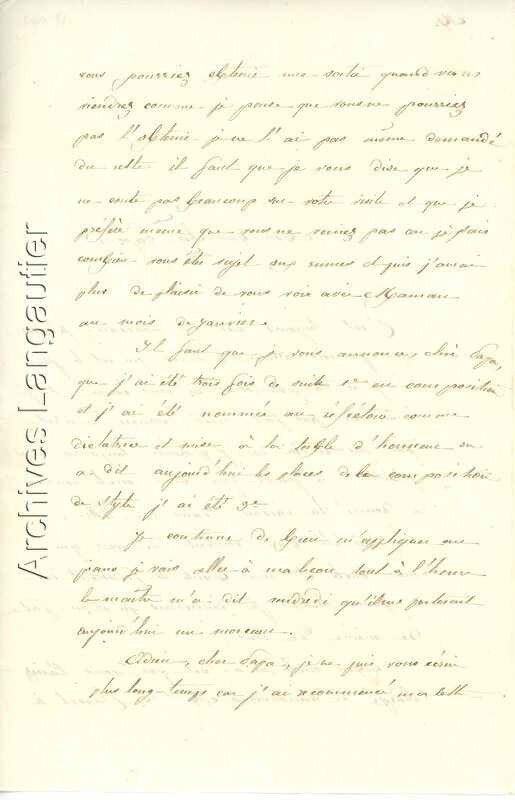 vous pourriez obtenir une sortie quand vous
viendrez comme je pense que vous ne pourriez
pas l'obtenir je ne l'ai pas même demandé
du reste il faut que je vous dise que je
ne conte pas beaucoup sur votre visite et que je
préfère même que vous ne veniez pas car je sais
combien vous êtes sujet aux rumes et puis j'aurai
plus de plaisir de vous voir avec Maman
au mois de Janvier.
Il faut que je vous annonce, cher Papa,
que j'ai été trois fois de suite 1re en composition
et j'ai été nommée au réfectoire comme
dictatrice et mise à la table d'honneur on
a dit aujourd'hui les places de la composition
de style j'ai été 3e
Je continue de bien m'appliquer au
piano je vais aller à ma leçon tout à l'heure
le maître m'a dit vendredi qu'il me porterait
aujourd'hui un morceau.
Adieu, cher Papa, je ne puis vous écrire
plus long-temps car j'ai recommencé ma lettr
Archives Langautier